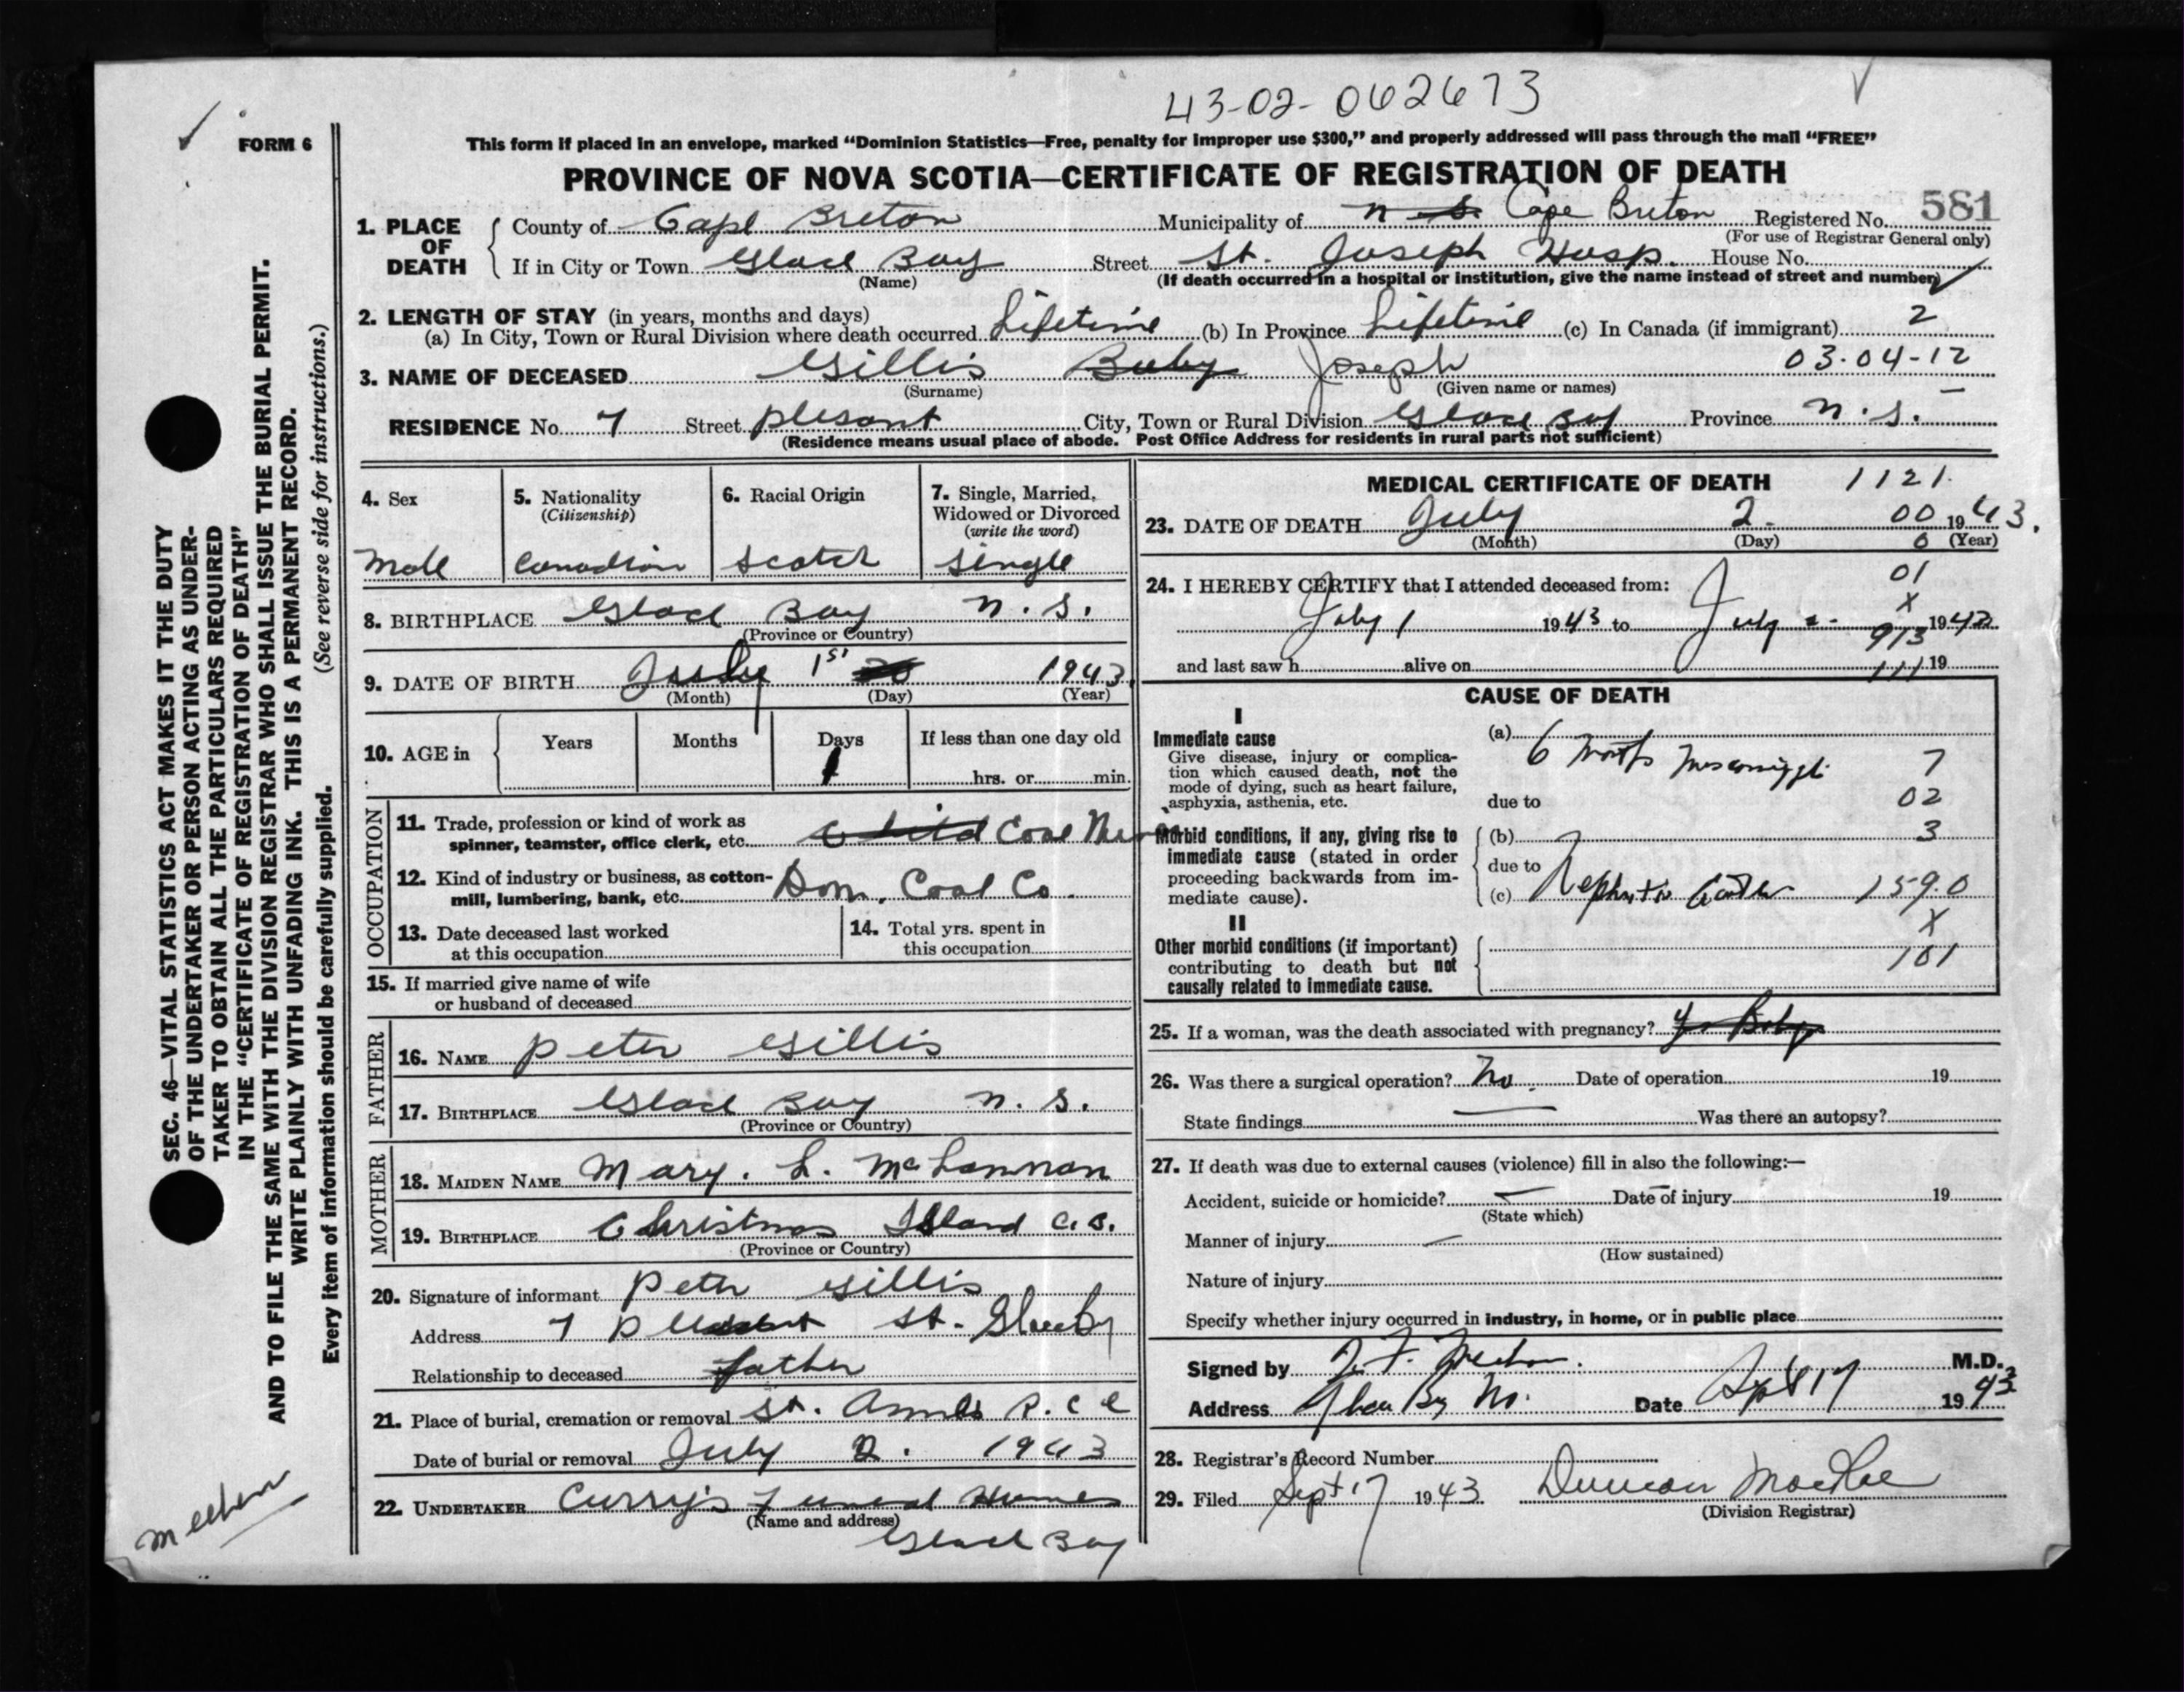 43-02-062673
FORM 6
This form if placed in an envelope, marked “Dominion Statistics—Free, penalty for improper use $300,” and properly addressed will pass through the mail “FREE”
PROVINCE OF NOVA SCOTIA—CERTIFICATE OF REGISTRATION OF DEATH
1. PLACE OF DEATH
County of Cape Breton Municipality of N S. Cape Breton Registered No. 581
(For use of Registrar General only)
If in City or Town Glace Bay Street St. Joseph Hosp. House No.
(Name) (If death occurred in a hospital or institution, give the name instead of street and number)
2. LENGTH OF STAY (in years, months and days)
(a) In City, Town or Rural Division where death occurred Lifetime (b) In Province Lifetime (c) In Canada (if immigrant) 2
03-04-12
3. NAME OF DECEASED Gillis Baby Joseph
(Surname) (Given name or names)
RESIDENCE No. 7 Street Plesant City, Town or Rural Division Glace Bay Province N.S.
(Residence means usual place of abode. Post Office Address for residents in rural parts not sufficient)
4. Sex
Male
5. Nationality
(Citizenship)
Canadian
6. Racial Origin
Scotch
7. Single, Married,
Widowed or Divorced
(write the word)
Single
8. BIRTHPLACE Glace Bay N.S.
(Province or Country)
9. DATE OF BIRTH July 1st 1943
(Month) (Day) (Year)
10. AGE in Years Months Days If less than one day old
1 hrs. or min.
OCCUPATION
11. Trade, profession or kind of work as
spinner, teamster, office clerk, etc. Child Coal
12. Kind of industry or business, as cotton-
mill, lumbering, bank, etc. Dom. Coal Co.
13. Date deceased last worked
at this occupation
14. Total yrs. spent in
this occupation
15. If married give name of wife
or husband of deceased
FATHER
16. NAME Peter Gillis
17. BIRTHPLACE Glace Bay N.S.
(Province or Country)
MOTHER
18. MAIDEN NAME Mary. L. McLannan
19. BIRTHPLACE Christmas Island C.B.
(Province or Country)
20. Signature of informant Peter Gillis
Address 7 St. Glace Bay
Relationship to deceased father
21. Place of burial, cremation or removal St. Annes R.C
Date of burial or removal July 2. 1943
22. UNDERTAKER Curry's Funeral Homes
(Name and address)
Glace Bay
MEDICAL CERTIFICATE OF DEATH 1121.
23. DATE OF DEATH July 2. 00 1943.
(Month) (Day) 0 (Year)
24. I HEREBY CERTIFY that I attended deceased from: 01
X
July 1 1943 to July 2. 1942
913
and last saw h alive on 19
111
CAUSE OF DEATH
I
Immediate cause
Give disease, injury or complica-
tion which caused death, not the
mode of dying, such as heart failure,
asphyxia, asthenia, etc.
(a) 6 7
due to 02
Morbid conditions, if any, giving rise to
immediate cause (stated in order
proceeding backwards from im-
mediate cause).
(b) 3
due to
(c) 159.0
X
II
Other morbid conditions (if important)
contributing to death but not
causally related to immediate cause.
101
25. If a woman, was the death associated with pregnancy?
26. Was there a surgical operation? No. Date of operation 19
State findings Was there an autopsy?
27. If death was due to external causes (violence) fill in also the following:—
Accident, suicide or homicide? Date of injury 19
(State which)
Manner of injury
(How sustained)
Nature of injury
Specify whether injury occurred in industry, in home, or in public place
Signed by M.D.
Address Date Sept 17 1943
28. Registrar's Record Number
29. Filed Sept 17 1943 Duncan MacRae
(Division Registrar)
SEC. 46—VITAL STATISTICS ACT MAKES IT THE DUTY
OF THE UNDERTAKER OR PERSON ACTING AS UNDER-
TAKER TO OBTAIN ALL THE PARTICULARS REQUIRED
IN THE “CERTIFICATE OF REGISTRATION OF DEATH”
AND TO FILE THE SAME WITH THE DIVISION REGISTRAR WHO SHALL ISSUE THE BURIAL PERMIT.
WRITE PLAINLY WITH UNFADING INK. THIS IS A PERMANENT RECORD.
Every item of information should be carefully supplied. (See reverse side for instructions.)
Meehen